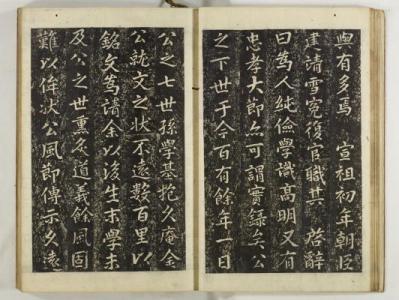 與有多焉 宣祖初年朝臣
建請雪冤復官職其 啓辭
曰爲人純儉學識高明又有
忠孝大節亦可謂實錄矣公
之下世于今百有餘年一日
公之七世孫學基抱久庵金
公就文之狀不遠數百里以
銘文爲請余以後生末學未
及公之世熏炙道義餘風固
難以侔狀公風節傳示久遠